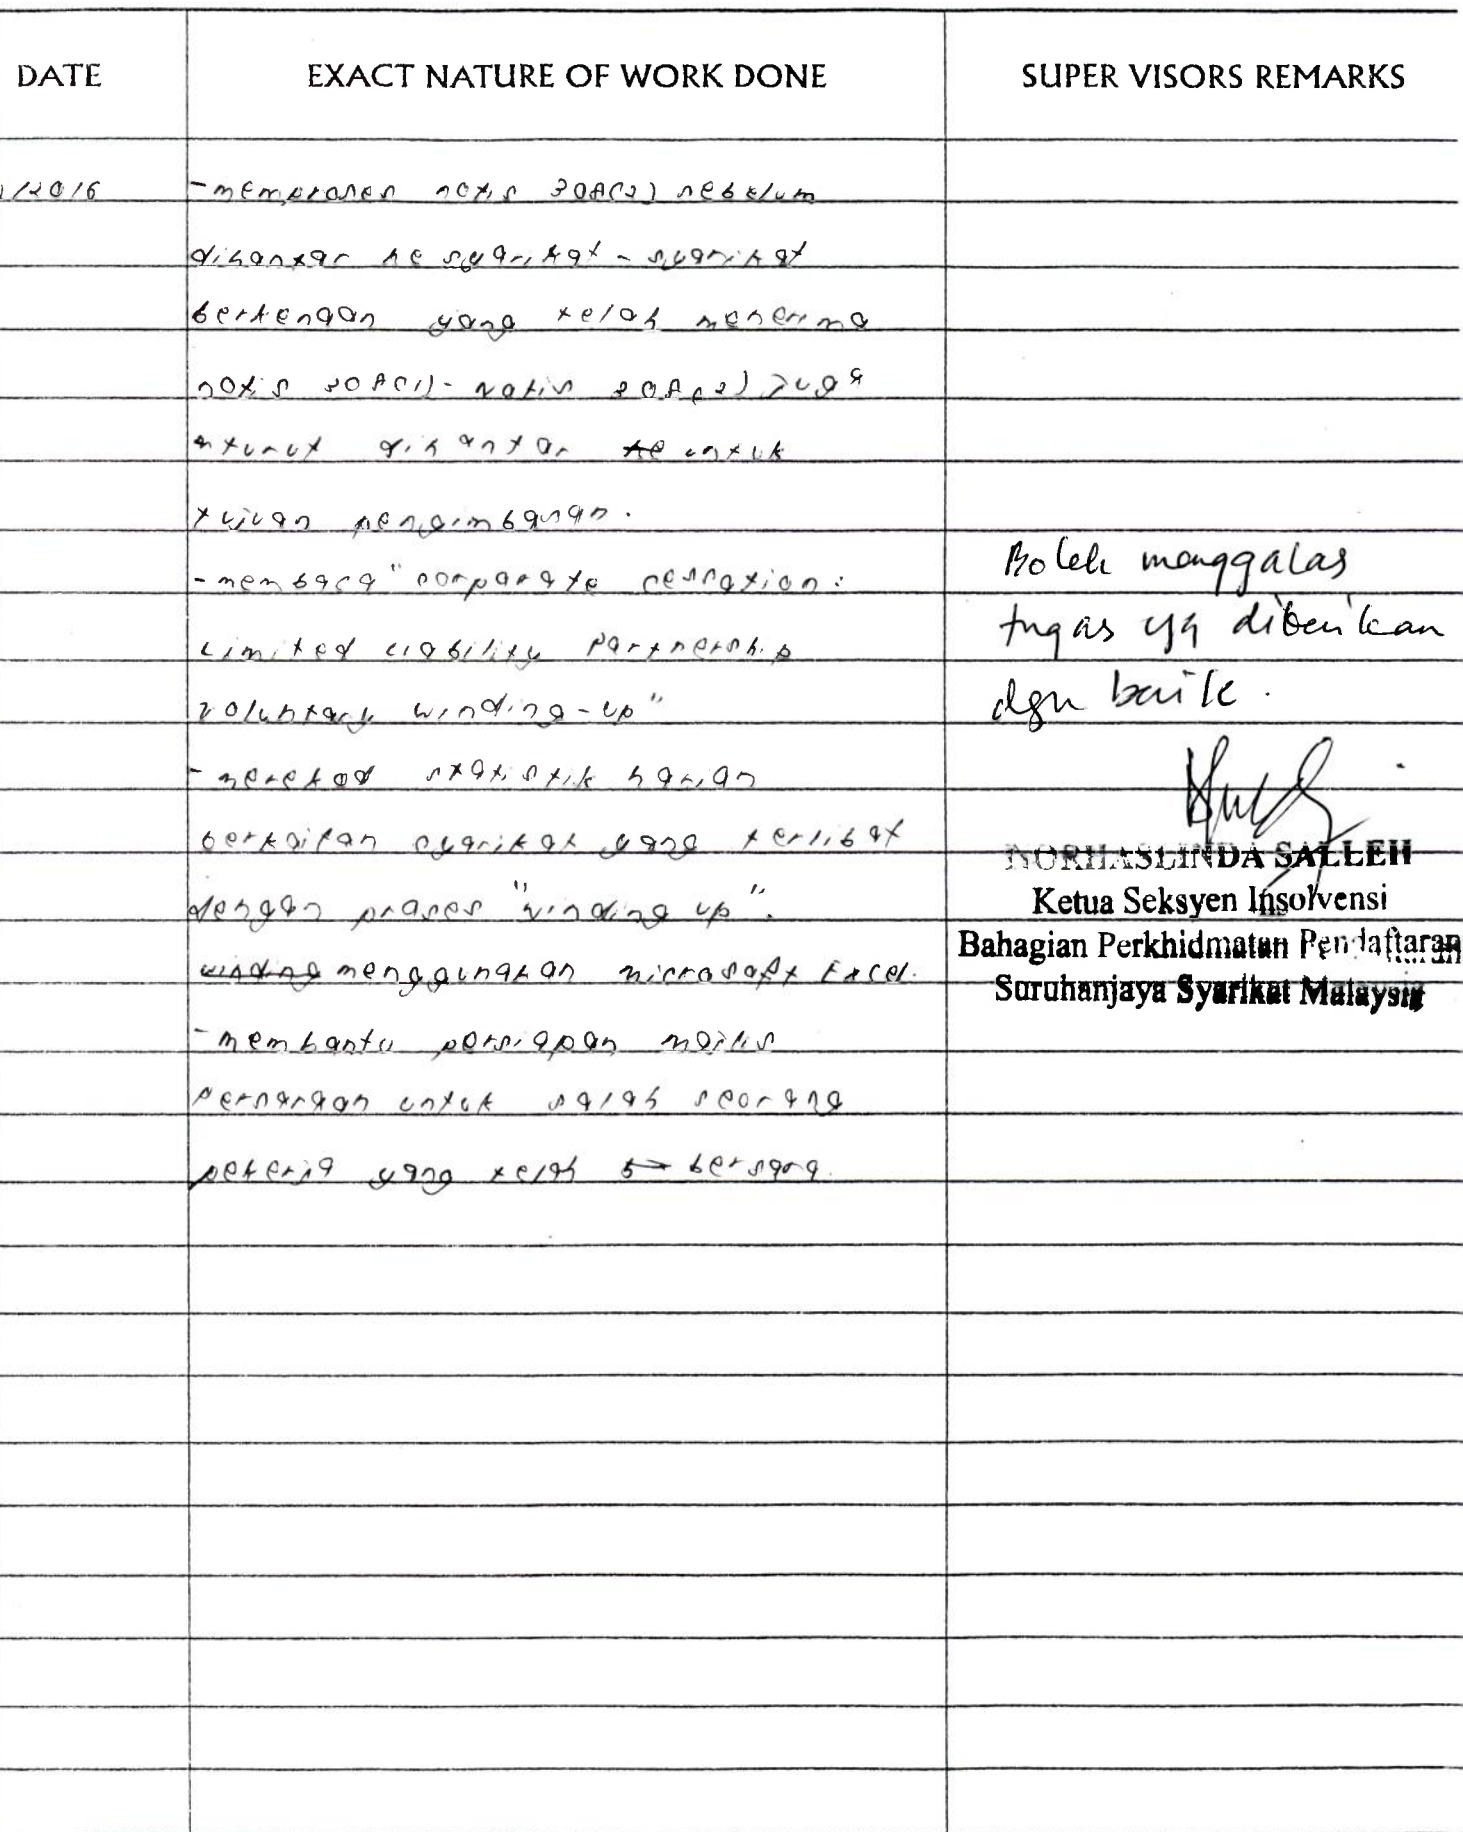 DATE EXACT NATURE OF WORK DONE SUPER VISORS REMARKS
/2016 - memproses notis 308(2) sebelum
dihantar ke syarikat - syarikat
berkenaan yang telah menerima
notis 308(1) - notis 308(2) juga
turut dihantar ke untuk
tujuan pengimbasan.
- membaca "corporate cessation:
Limited Liability Partnership
voluntary winding-up"
- merekod statistik harian
berkaitan syarikat yang terlibat
dengan proses "winding up".
winding menggunakan microsoft Excel.
- membantu persiapan majlis
persaraan untuk salah seorang
pekerja yang telah bersara.
Boleh menggalas
tugas yg diberikan
dgn baik.
NORHASLINDA SALLEH
Ketua Seksyen Insolvensi
Bahagian Perkhidmatan Pendaftaran
Suruhanjaya Syarikat Malaysia